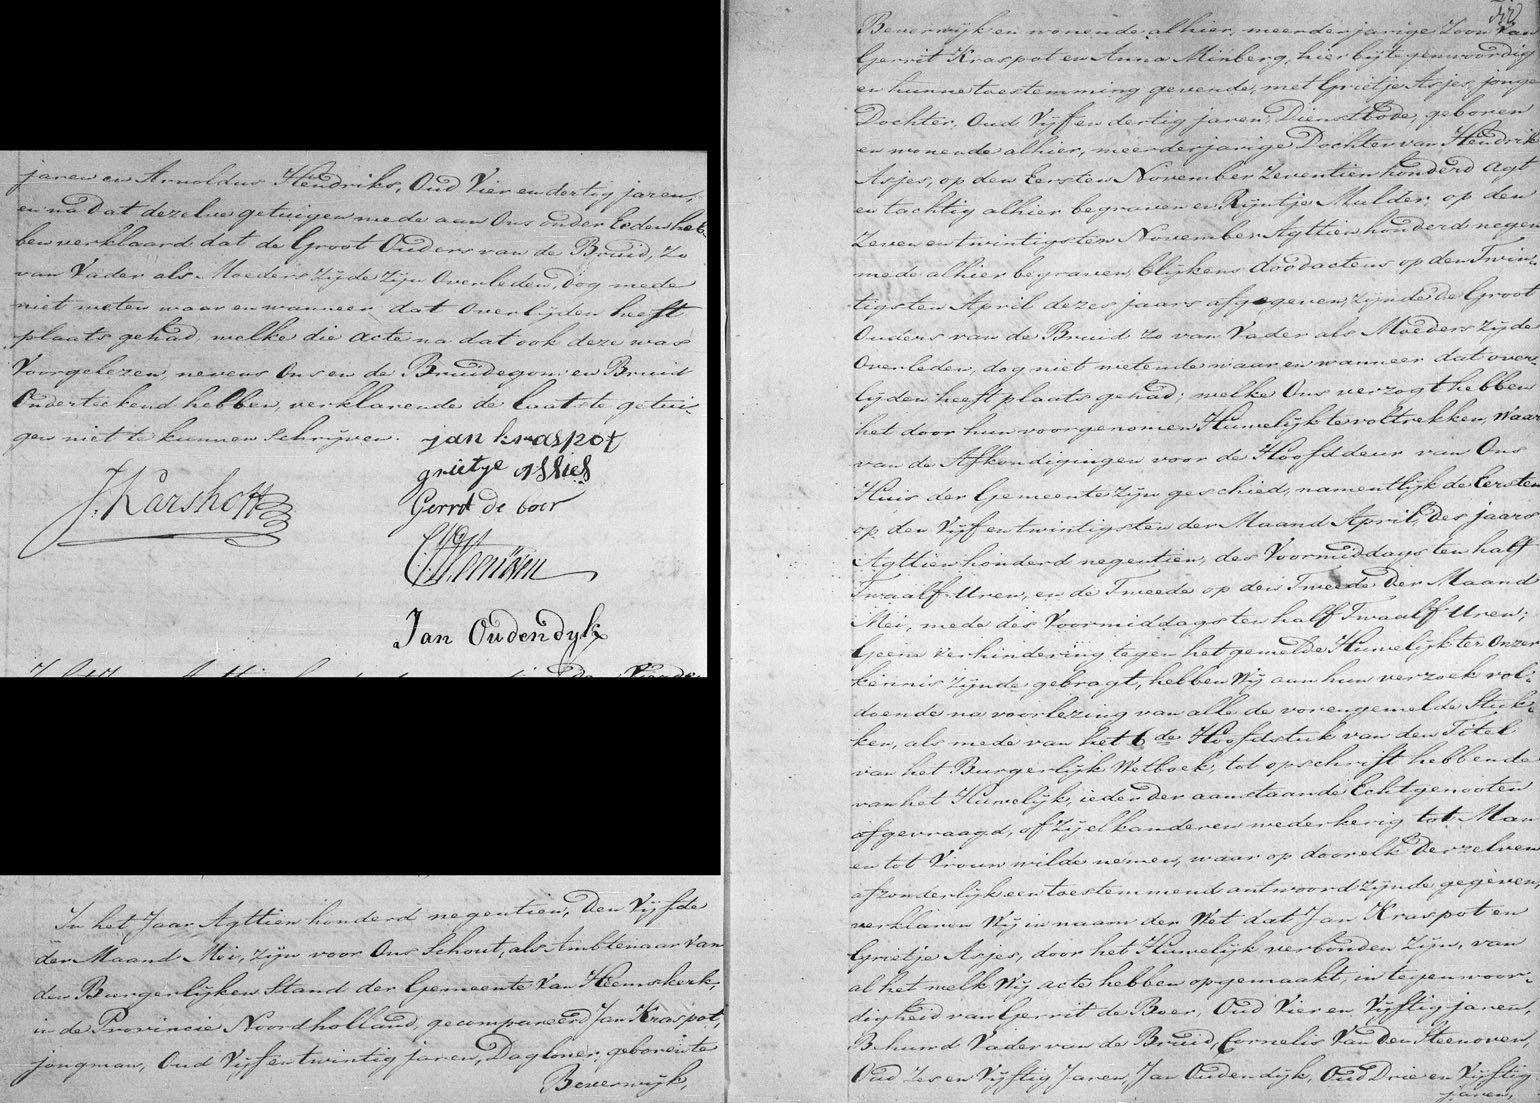 jaren en Arnoldus Hendriks, Oud Vier en dertig jaren,
en na dat dezelve getuigen mede aan Ons onder Eeden heb-
ben verklaard dat de Groot Ouders van de Bruid, Zo
van Vader als Moeders Zijde Zijn Overleden, dog mede
niet weten waar en wanneer dat Overlijden heeft
plaats gehad, welke die acte na dat ook deze was
Voorgelezen, nevens Ons en de Bruidegom en Bruid
Onderteekend hebben, verklarende de laatste getui-
gen niet te kunnen Schrijven.
jan kraspot
grietje assies
Gerrit de boer
J. Karshoff
Jan Oudendyk
In het Jaar Agttien honderd negentien, Den Vijfde
der Maand Mei, Zijn voor Ons Schout, als Ambtenaar Van
den Burgerlijken Stand der Gemeente Van Heemskerk,
in de Provincie Noordholland, gecompareerd Jan Kraspot,
jongman, Oud Vijf en twintig jaren, Dagloner, geboren te
Beverwijk,
Beverwijk en wonende alhier, meerderjarige Zoon Van
Gerrit Kraspot en Anna Minberg, hier bij tegenwoordig
en hunne toestemming gevende, met Grietje Asjes, jonge
Dochter, Oud Vijf en dertig jaren, Dienstbode, geboren
en wonende alhier, meerderjarige Dochter van Hendrik
Asjes, op den Eersten November Zeventien honderd Agt
en tachtig alhier begraven en Rijntje Mulder, op den
Zeven en twintigsten November Agttien honderd negen
mede alhier begraven, blijkens doodactens op den Twin-
tigsten April dezes jaars afgegeven, zijnde de Groot
Ouders van de Bruid Zo van Vader als Moeders Zijde
Overleden, dog niet wetende waar en wanneer dat over-
lijden heeft plaats gehad; welke Ons verzogt hebben
het door hun voorgenomen Huwelijk te voltrekken, waar
van de Afkondigingen voor de Hoofddeur van Ons
Huis der Gemeente zijn geschied, namentlijk de Eersten
op den Vijf en twintigsten der Maand April, des jaars
Agttien honderd negentien, des Voormiddags ten half
Twaalf Uren, en de Tweede op den Tweede Der Maand
Mei, mede des Voormiddags ten half Twaalf Uren;
Geene verhindering tegen het gemelde Huwelijk ter Onzer
kennis Zijnde gebragt, hebben Wij aan hun verzoek vol-
doende na voorlezing van alle de vorengemelde Stuk-
ken, als mede van het 6de Hoofdstuk van den Titel
van het Burgerlijk Wetboek, tot opschrift hebbende
van het Huwelijk, ieder der aanstaande Echtgenooten
afgevraagd, of Zij elkanderen wederkerig tot Man
en tot Vrouw wilde nemen, waar op door elk derzelven
afzonderlijk een toestemmend antwoord Zijnde gegeven,
verklaren Wij in naam der Wet dat Jan Kraspot en
Grietje Asjes, door het Huwelijk verbonden Zijn, van
al het welk Wij acte hebben opgemaakt, in tegenwoor-
digheid van Gerrit de Boer, Oud Vier en Vijftig jaren,
Behuwd Vader van de Bruid, Cornelis Van den Steenoven,
Oud Zes en Vijftig Jaren, Jan Oudendijk, Oud Drie en Vijftig
jaren,